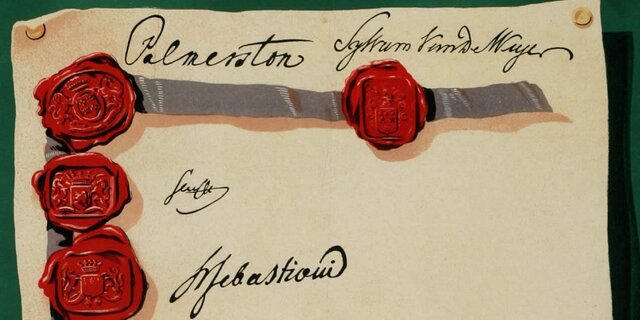 Palmerston Sylvain Van De Weyer
Senfft
H Sebastiani